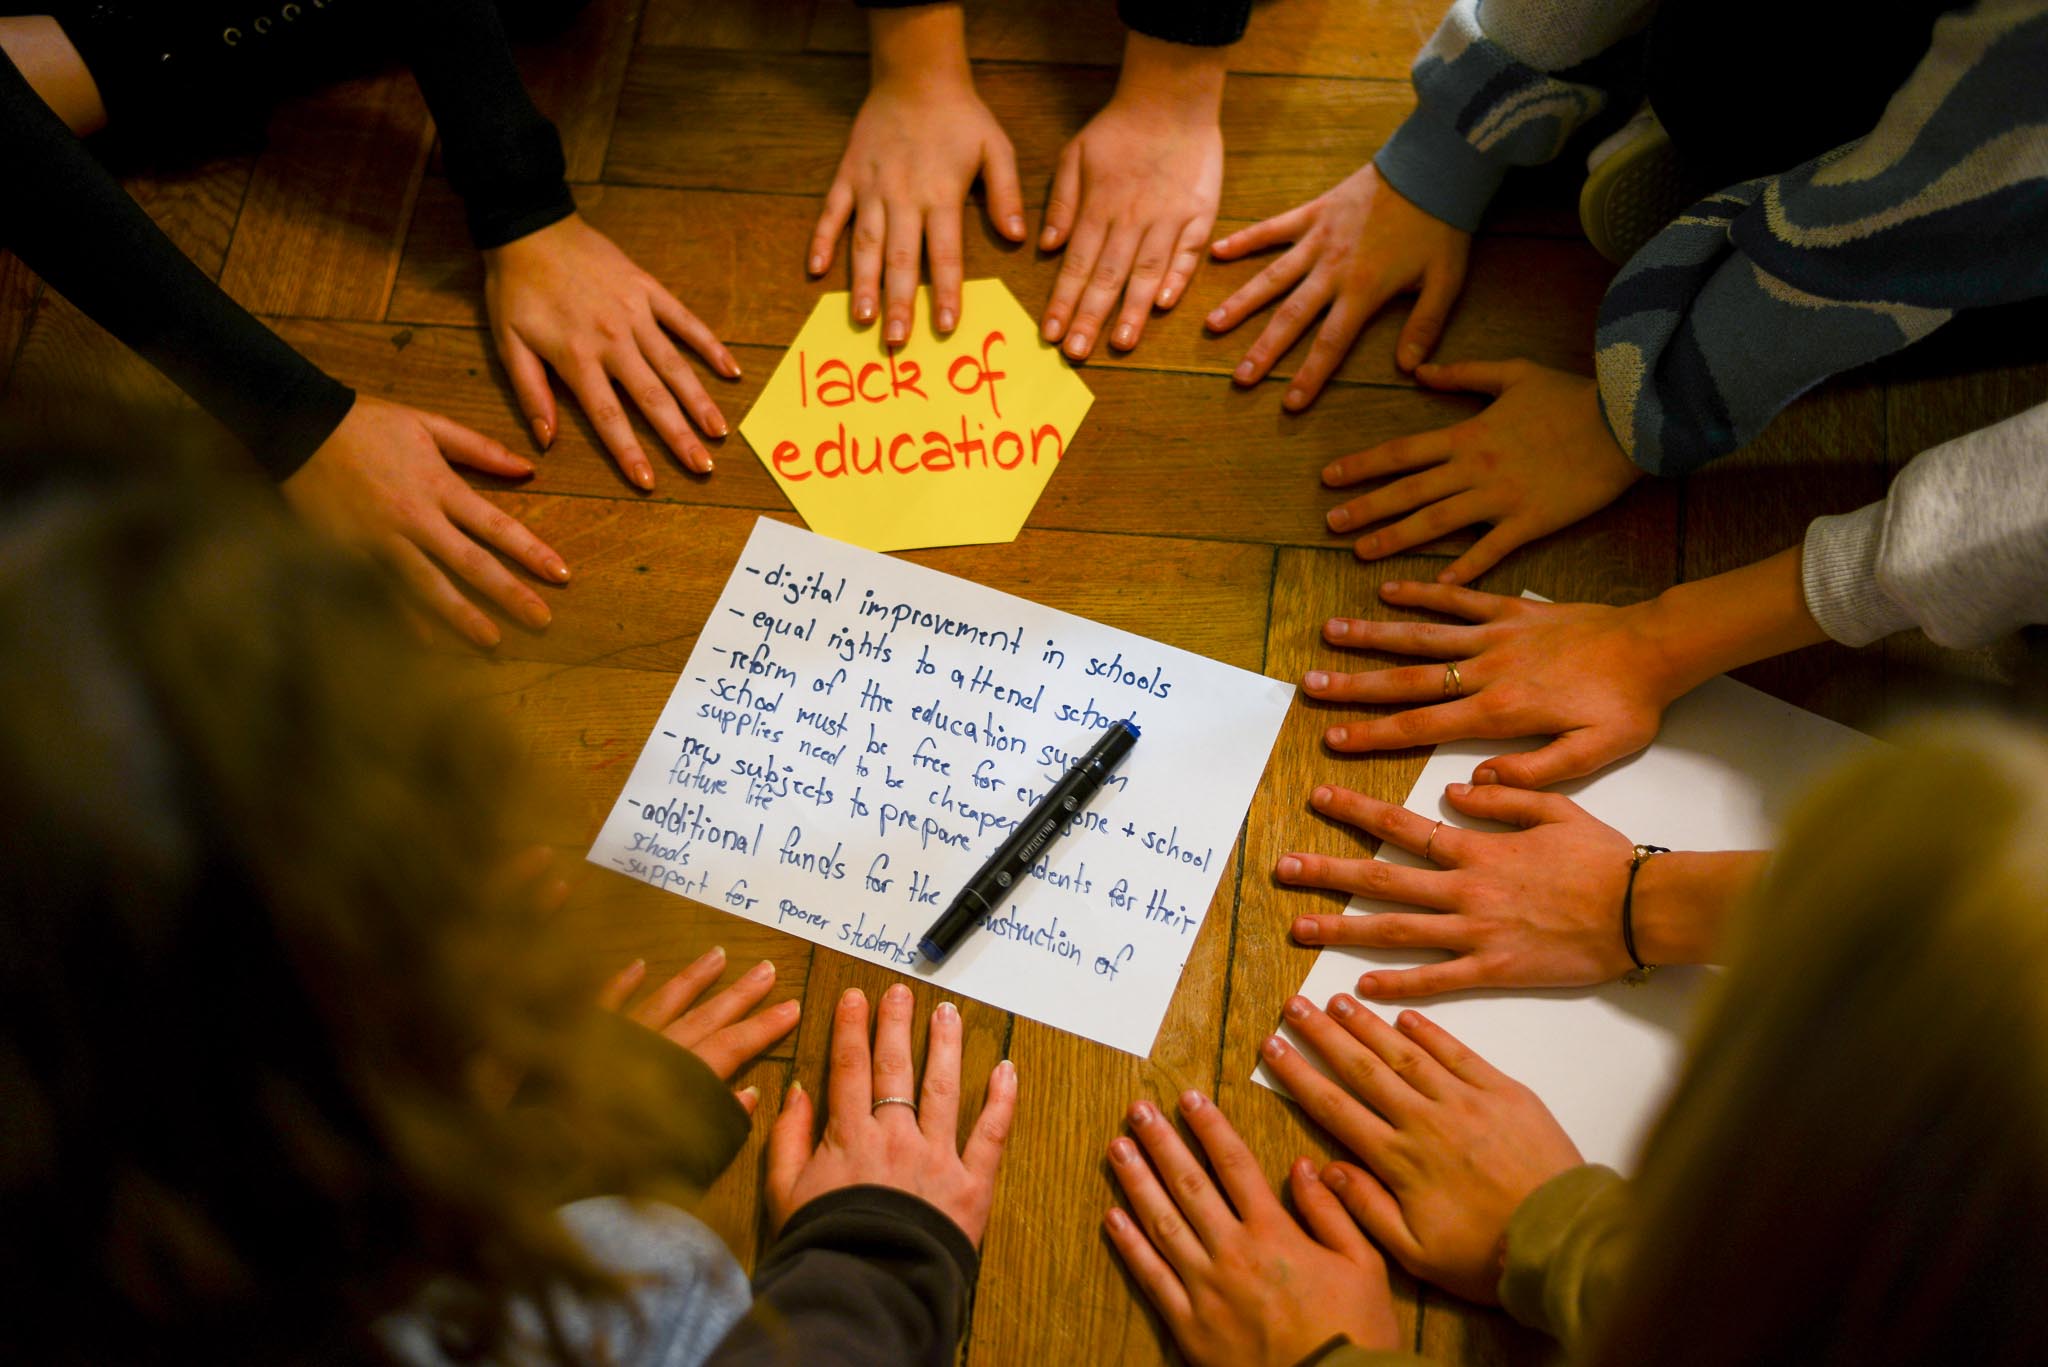 lack of
education
- digital improvement in schools
- equal rights to attend schools
- reform of the education system
- school must be free for everyone + school
supplies need to be cheaper
- new subjects to prepare students for their
future life
- additional funds for the construction of
schools
- support for poorer students